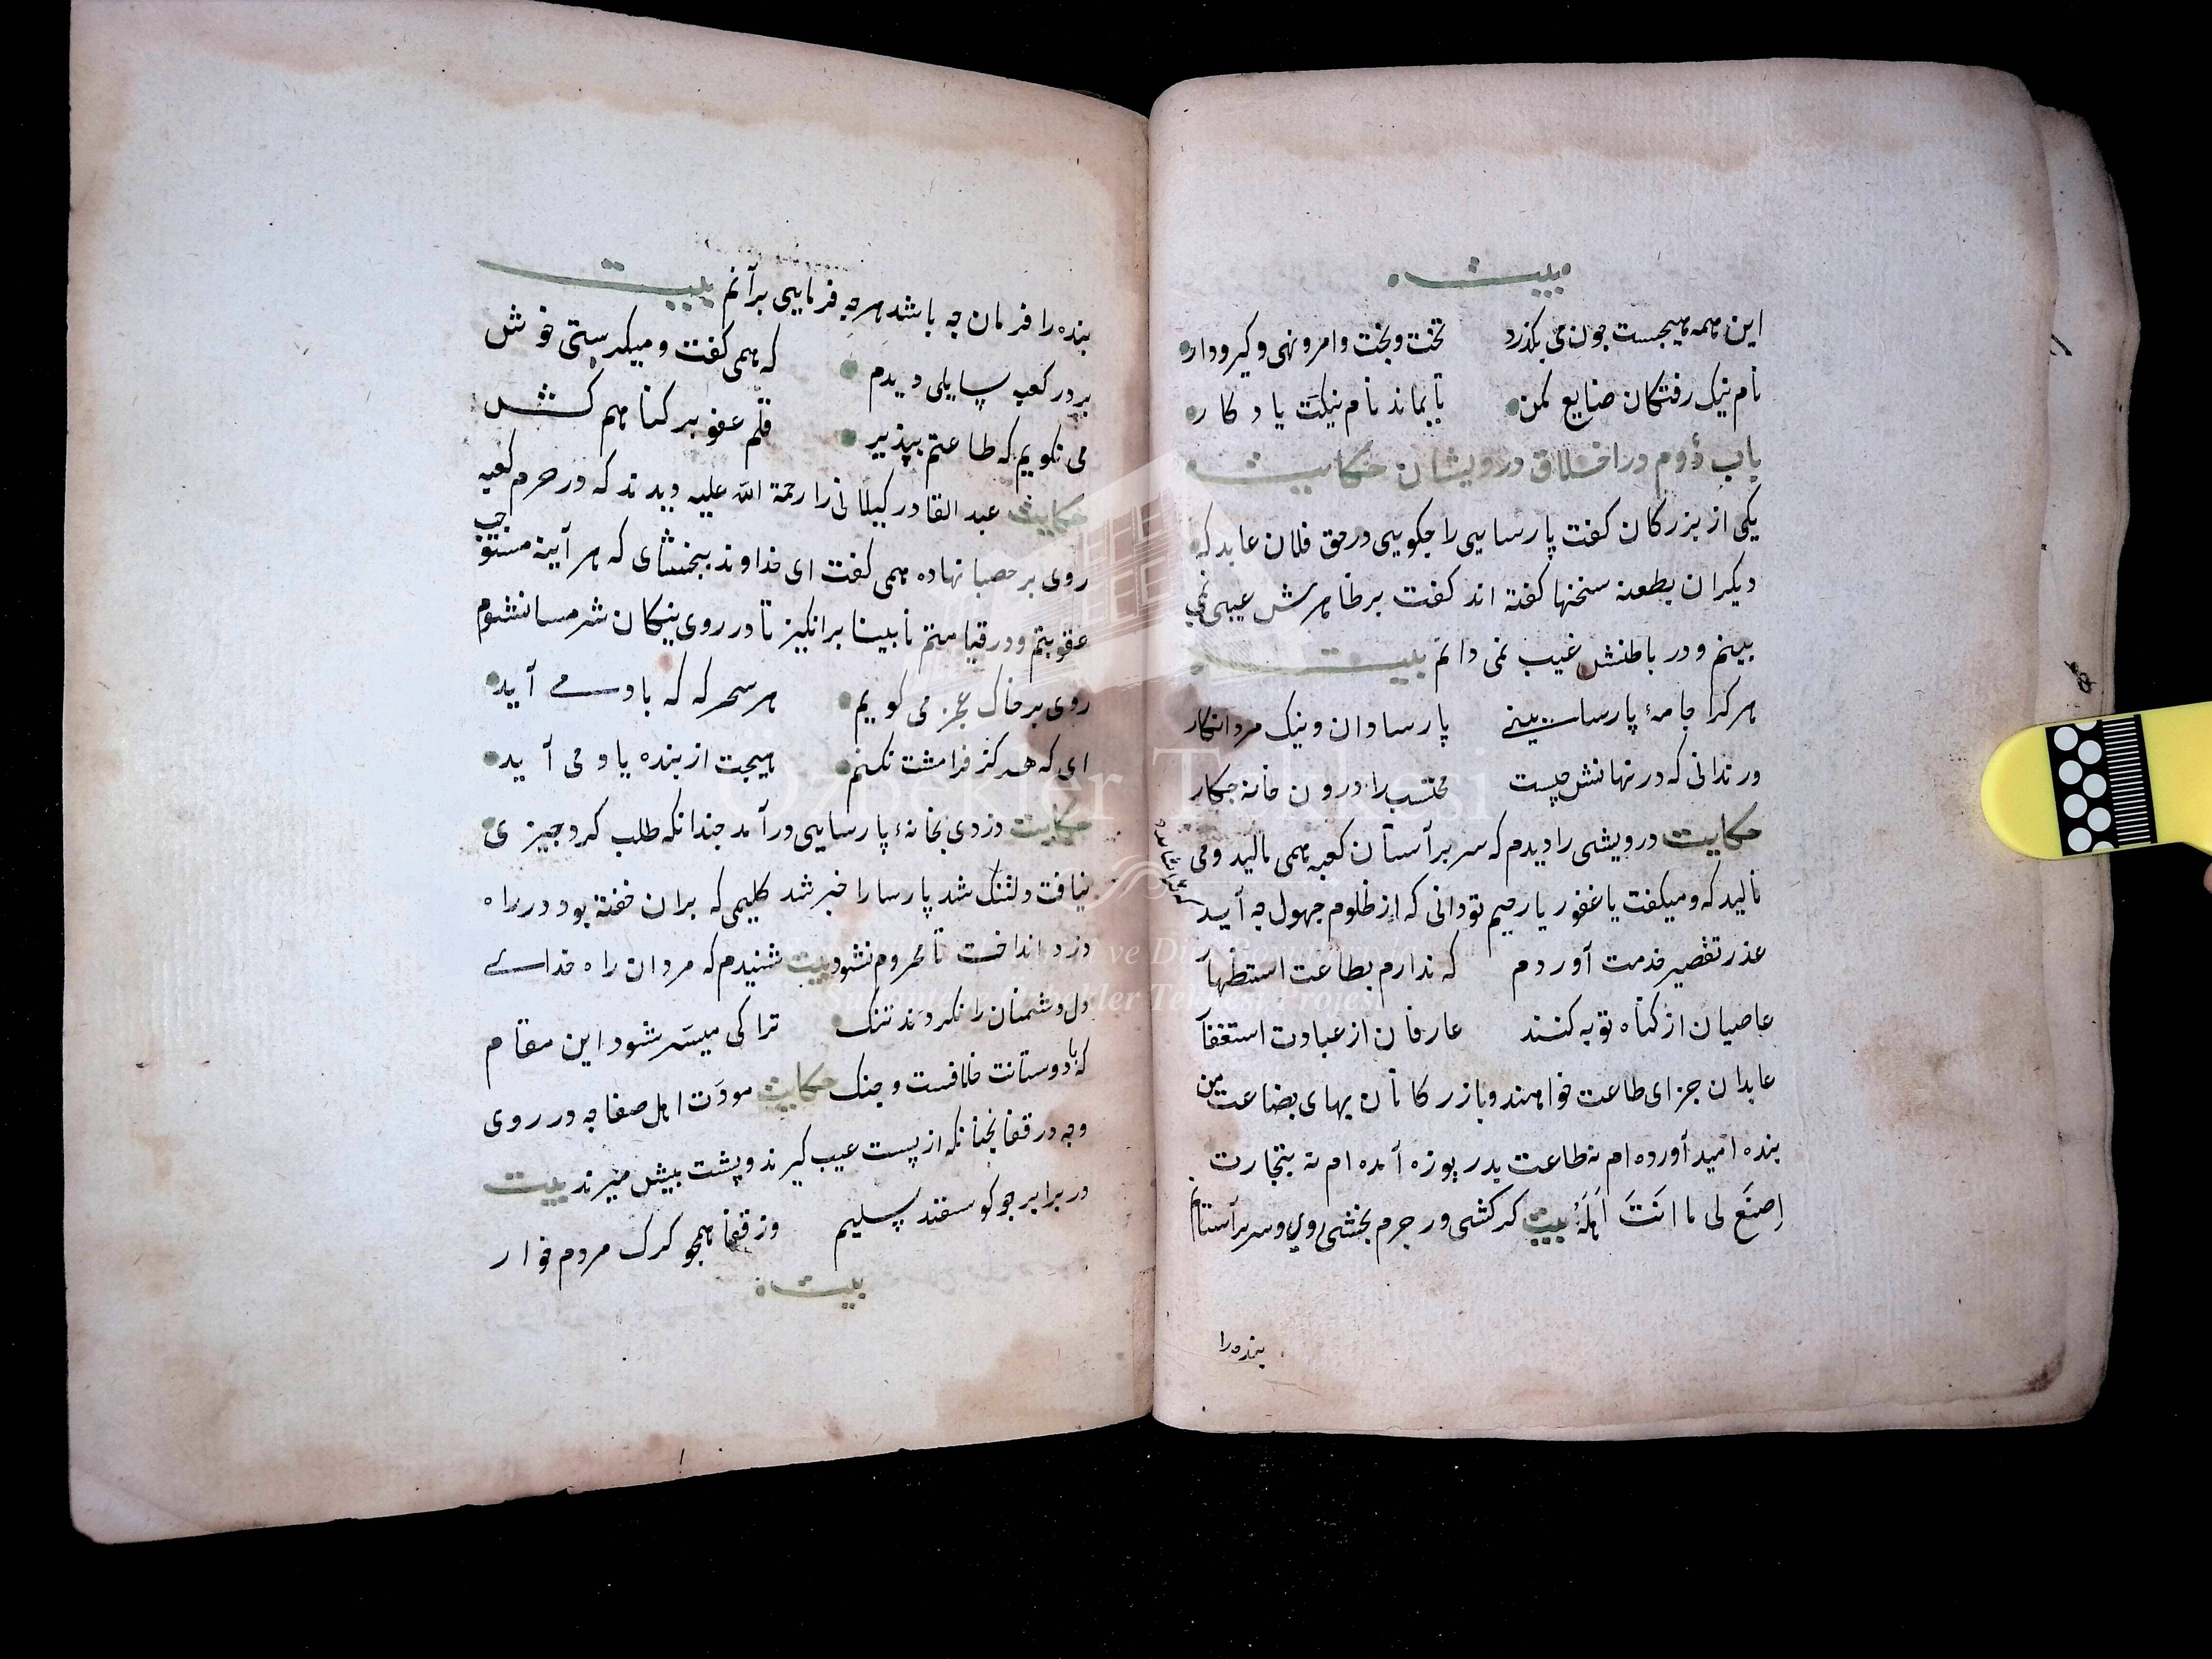 بیت
این همه هیچست چون می بگذرد تخت و بخت و امر و نهی و کیر و دار
نام نیک رفتکان ضایع مکن تا بماند نام نیکت یادکار
باب دوم در اخلاق درویشان حکایت
یکی از بزرکان کفت پارسایی را چکویی در حق فلان عابد که
دیکران بطعنه سخنها کفته اند کفت بر ظاهرش عیبی نمی
بینم و در باطنش غیب نمی دانم بیت
هر کرا جامهٔ پارسا بینی پارسا دان و نیک مرد انکار
ور ندانی که در نهانش چیست محتسب را درون خانه چکار
حکایت درویشی را دیدم که سر بر آستان کعبه همی مالید و می
نالید که و میکفت یا غفور یا رحیم تو دانی که از ظلوم جهول چه آید
عذر تقصیر خدمت آوردم که ندارم بطاعت استظهار
عاصیان از کناه توبه کنند عارفان از عبادت استغفار
عابدان جزای طاعت خواهند و بازرکانان بهای بضاعت من
بنده امید آورده ام نه طاعت بدریوزه آمده ام نه بتجارت
اِصنَع لی ما انَتَ اَهلَهُ بیت کر کشی ور جرم بخشی روی و سر بر آستانم
بنده را
بنده را فرمان چه باشد هر چه فرمایی برآنم بیت
بر در کعبه سایلی دیدم که همی کفت و میکرستی خوش
می نکویم که طاعتم بپذیر قلم عفو بر کناهم کش
حکایت عبد القادر کیلانی را رحمة الله علیه دیدند که در حرم کعبه
روی بر حصبا نهاده همی کفت ای خداوند ببخشای که هر آینه مستوجب
عقوبتم و در قیامتم نابینا برانکیز تا در روی نیکان شرمسار نشوم
روی بر خاک عجز می کویم هر سحر که که باد می آید
ای که هرکز فرامشت نکنم هیچت از بنده یاد می آید
حکایت دزدی بخانهٔ پارسایی درآمد چندانکه طلب کرد چیزی
نیافت دلتنک شد پارسا را خبر شد کلیمی که بران خفته بود در راه
دزد انداخت تا محروم نشود بیت شنیدم که مردان راه خدای
دل دشمنان را نکردند تنک ترا کی میسّر شود این مقام
که با دوستانت خلافست و جنک حکایت مودّت اهل صفا چه در روی
و چه در قفا نچنانکه از پست عیب کیرند و پشت بیش میرند بیت
در برابر چو کوسفند سلیم وز قفا همچو کرک مردم خوار
بیت